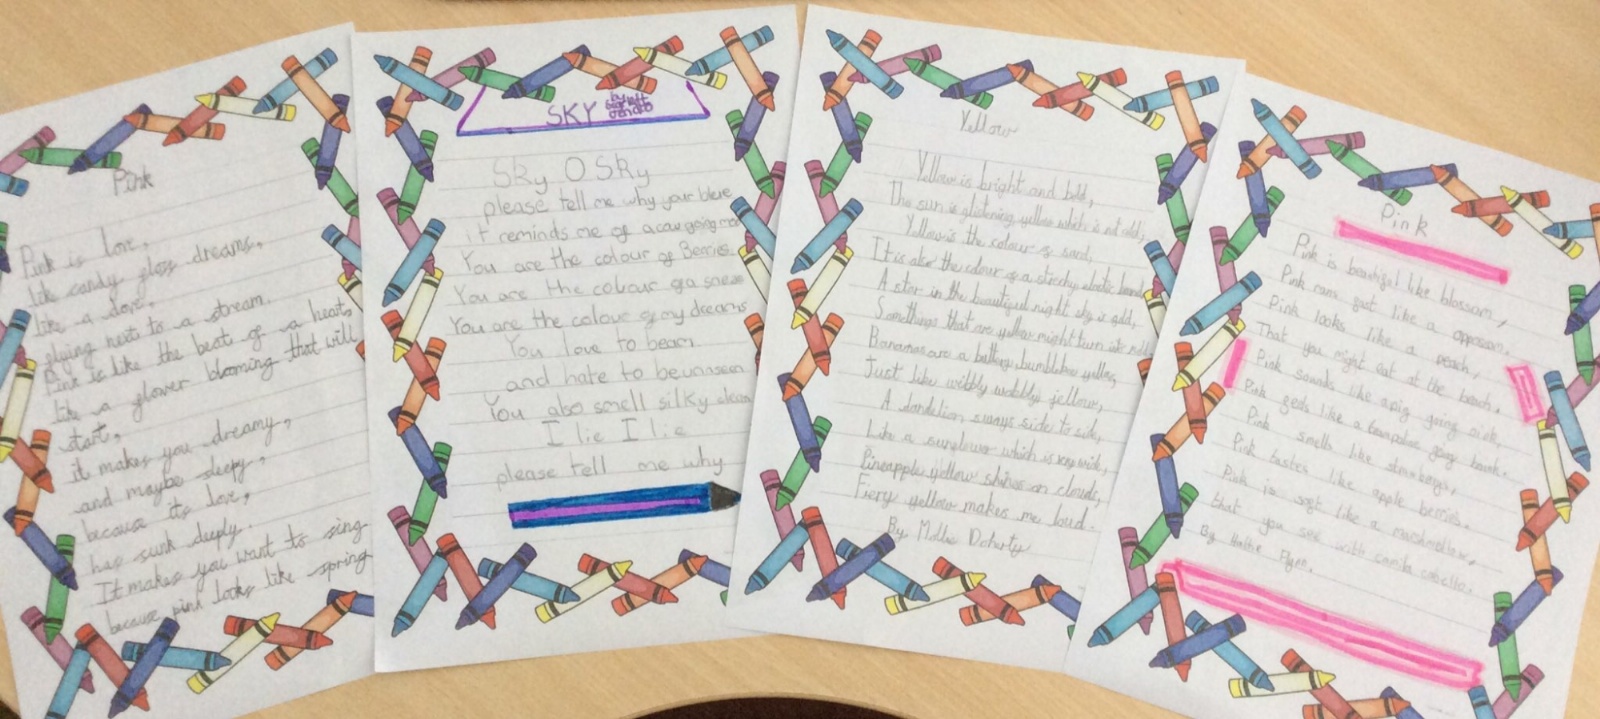 Pink
Pink is love,
like candy gloss dreams,
like a dove,
flying next to a stream.
Pink is like the beat of a heart,
like a flower blooming that will
start,
it makes you dreamy,
and maybe sleepy,
because it's love,
has sunk deeply.
It makes you want to sing
because pink looks like spring
SKY
Sky O Sky
please tell me why your blue
it reminds me of a cow going moo
You are the colour of Berries
You are the colour of a
You are the colour of my dreams
You love to beam
and hate to be unseen
You also smell silky clean
I lie I lie
please tell me why
Yellow
Yellow is bright and bold,
The sun is glistening yellow which is not old,
Yellow is the colour of sand,
It is also the colour of a stretchy elastic band,
A star in the beautiful night sky is gold,
Somethings that are yellow might turn into
Bananas are a buttery, bumblebee yellow,
Just like wibbly wobbly jellow,
A dandelion sways side to side,
Like a sunflower which is very wide,
Pineapple yellow shines on clouds,
Fiery yellow makes me loud.
By Mollie Doherty
Pink
Pink is beautiful like blossom,
Pink runs fast like a oppossom.
Pink looks like a peach,
That you might eat at the beach.
Pink sounds like a pig going oink,
Pink feels like a going boink.
Pink smells like strawberrys,
Pink tastes like apple berries.
Pink is soft like a marshmellow,
that you see with camila cabello.
By Flynn.